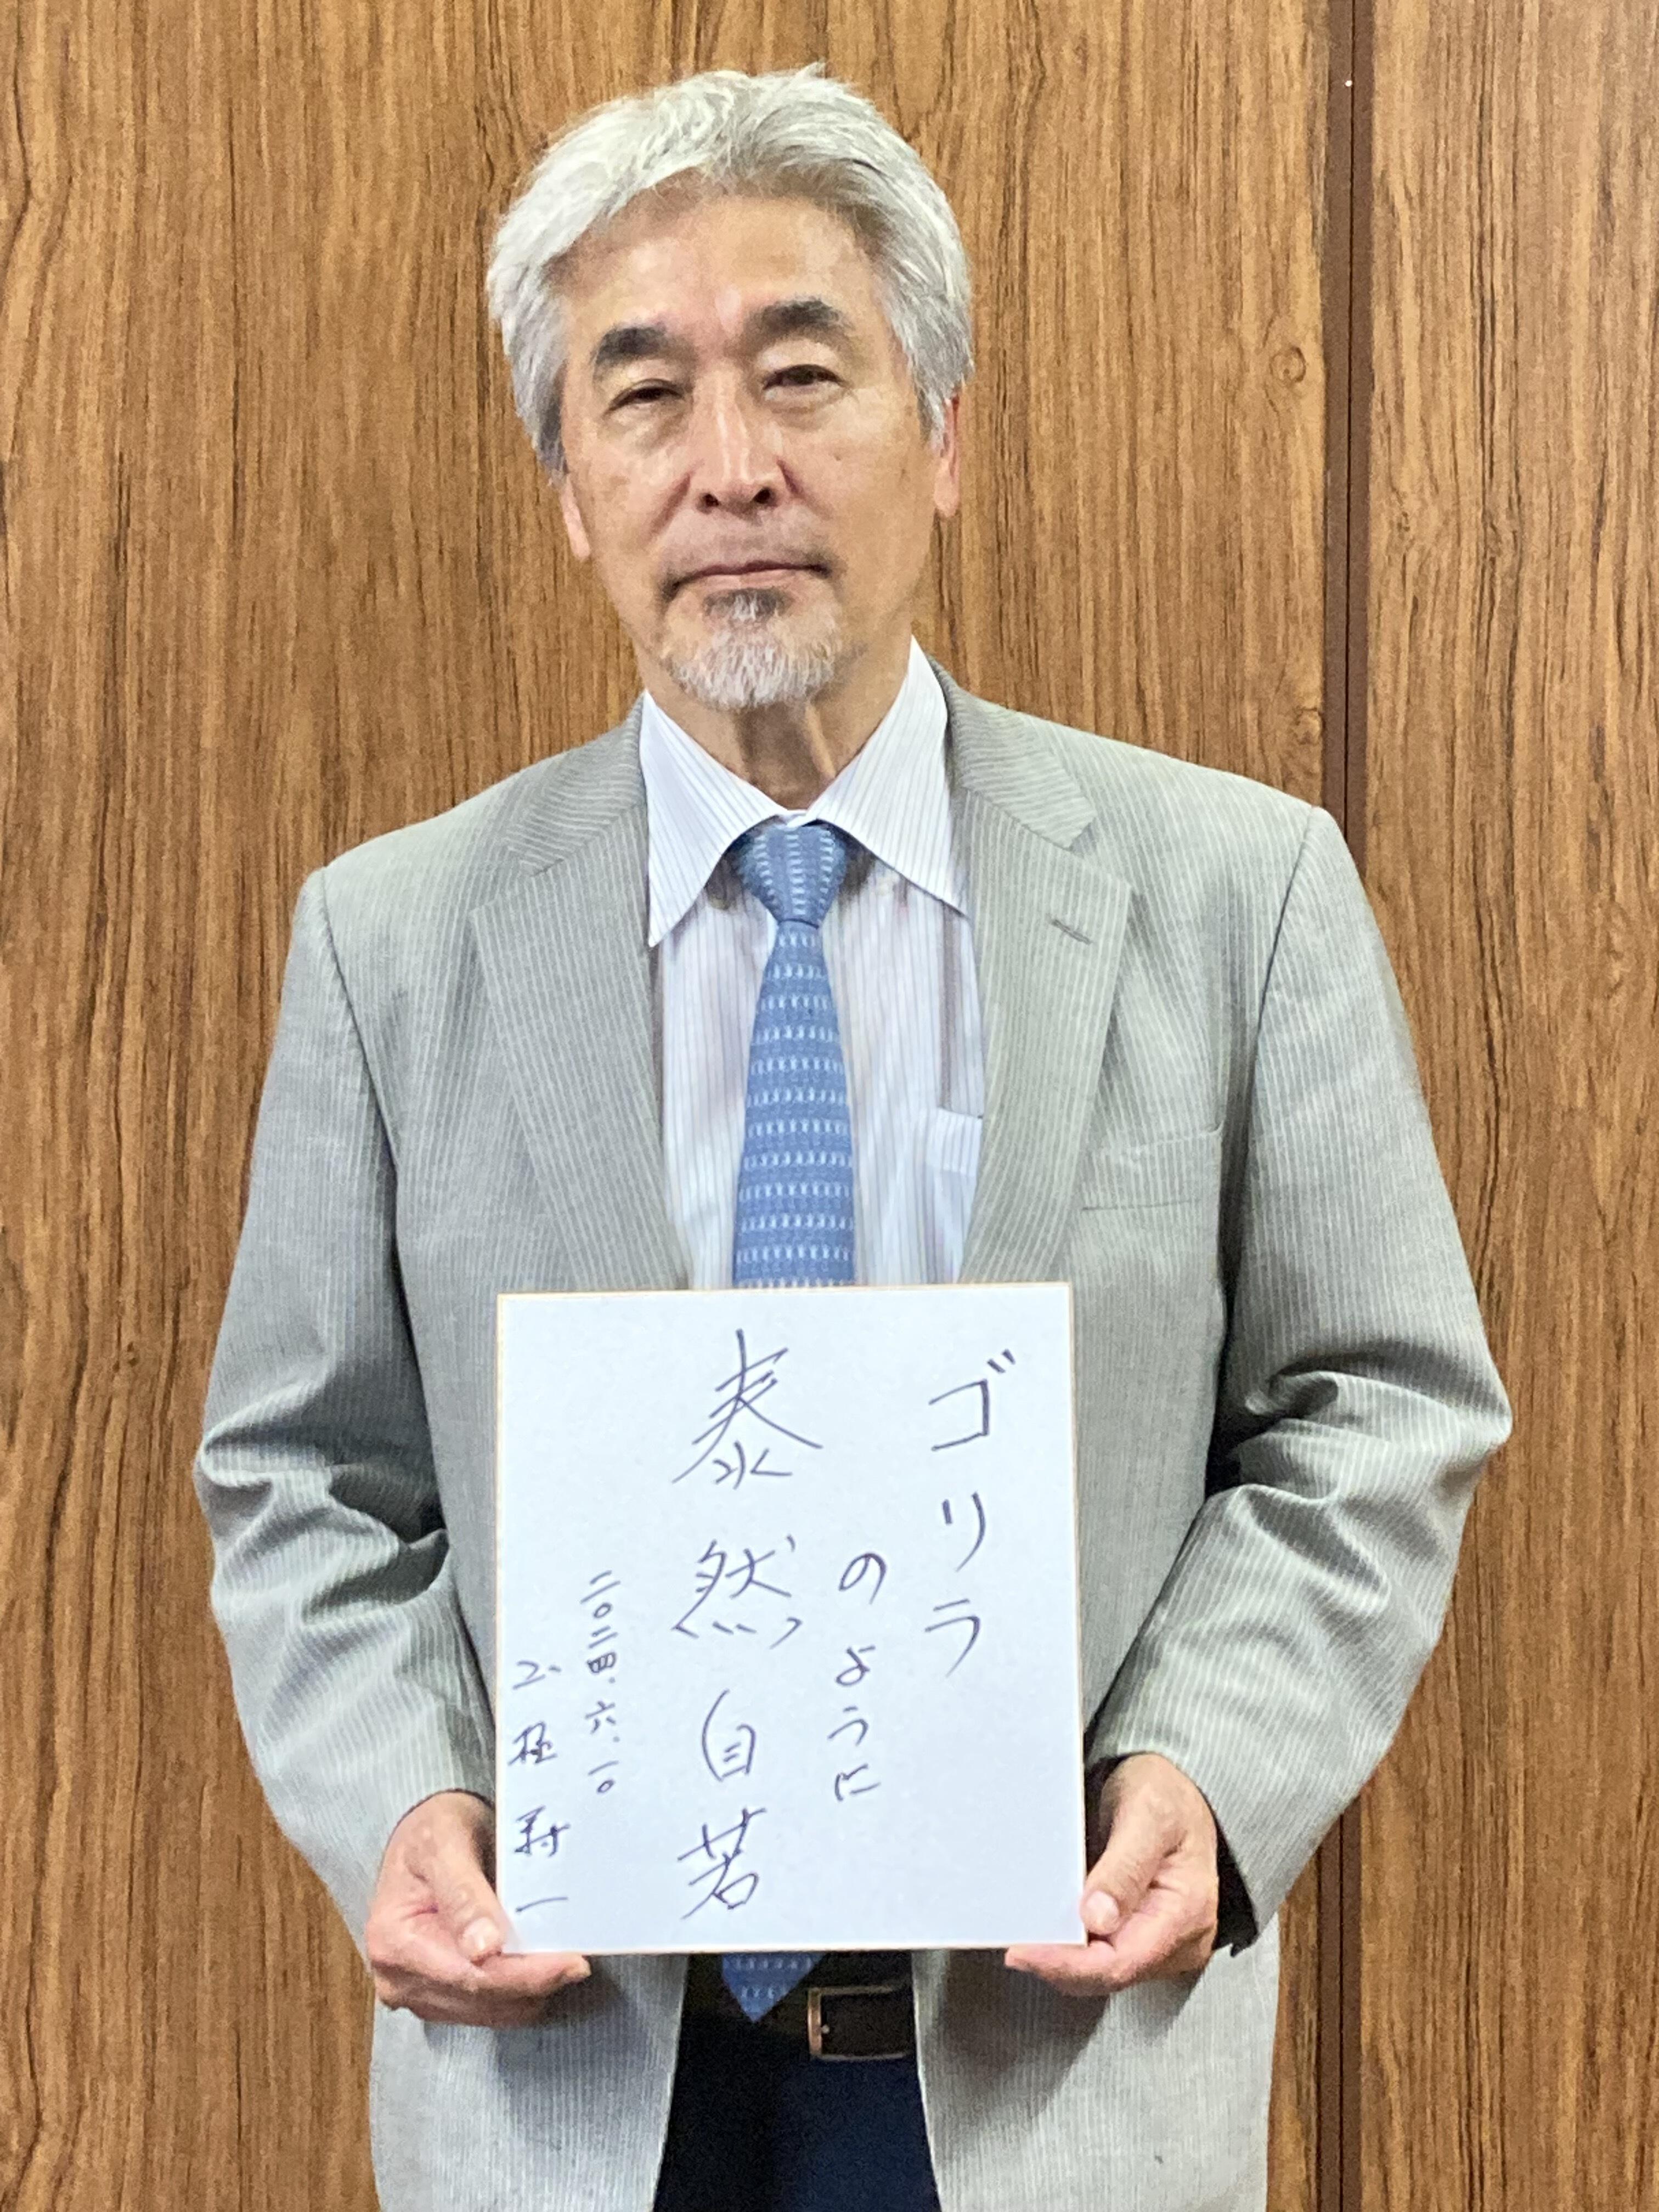 ゴリラ
のように
泰然自若
二〇二四.六.一〇
山極寿一